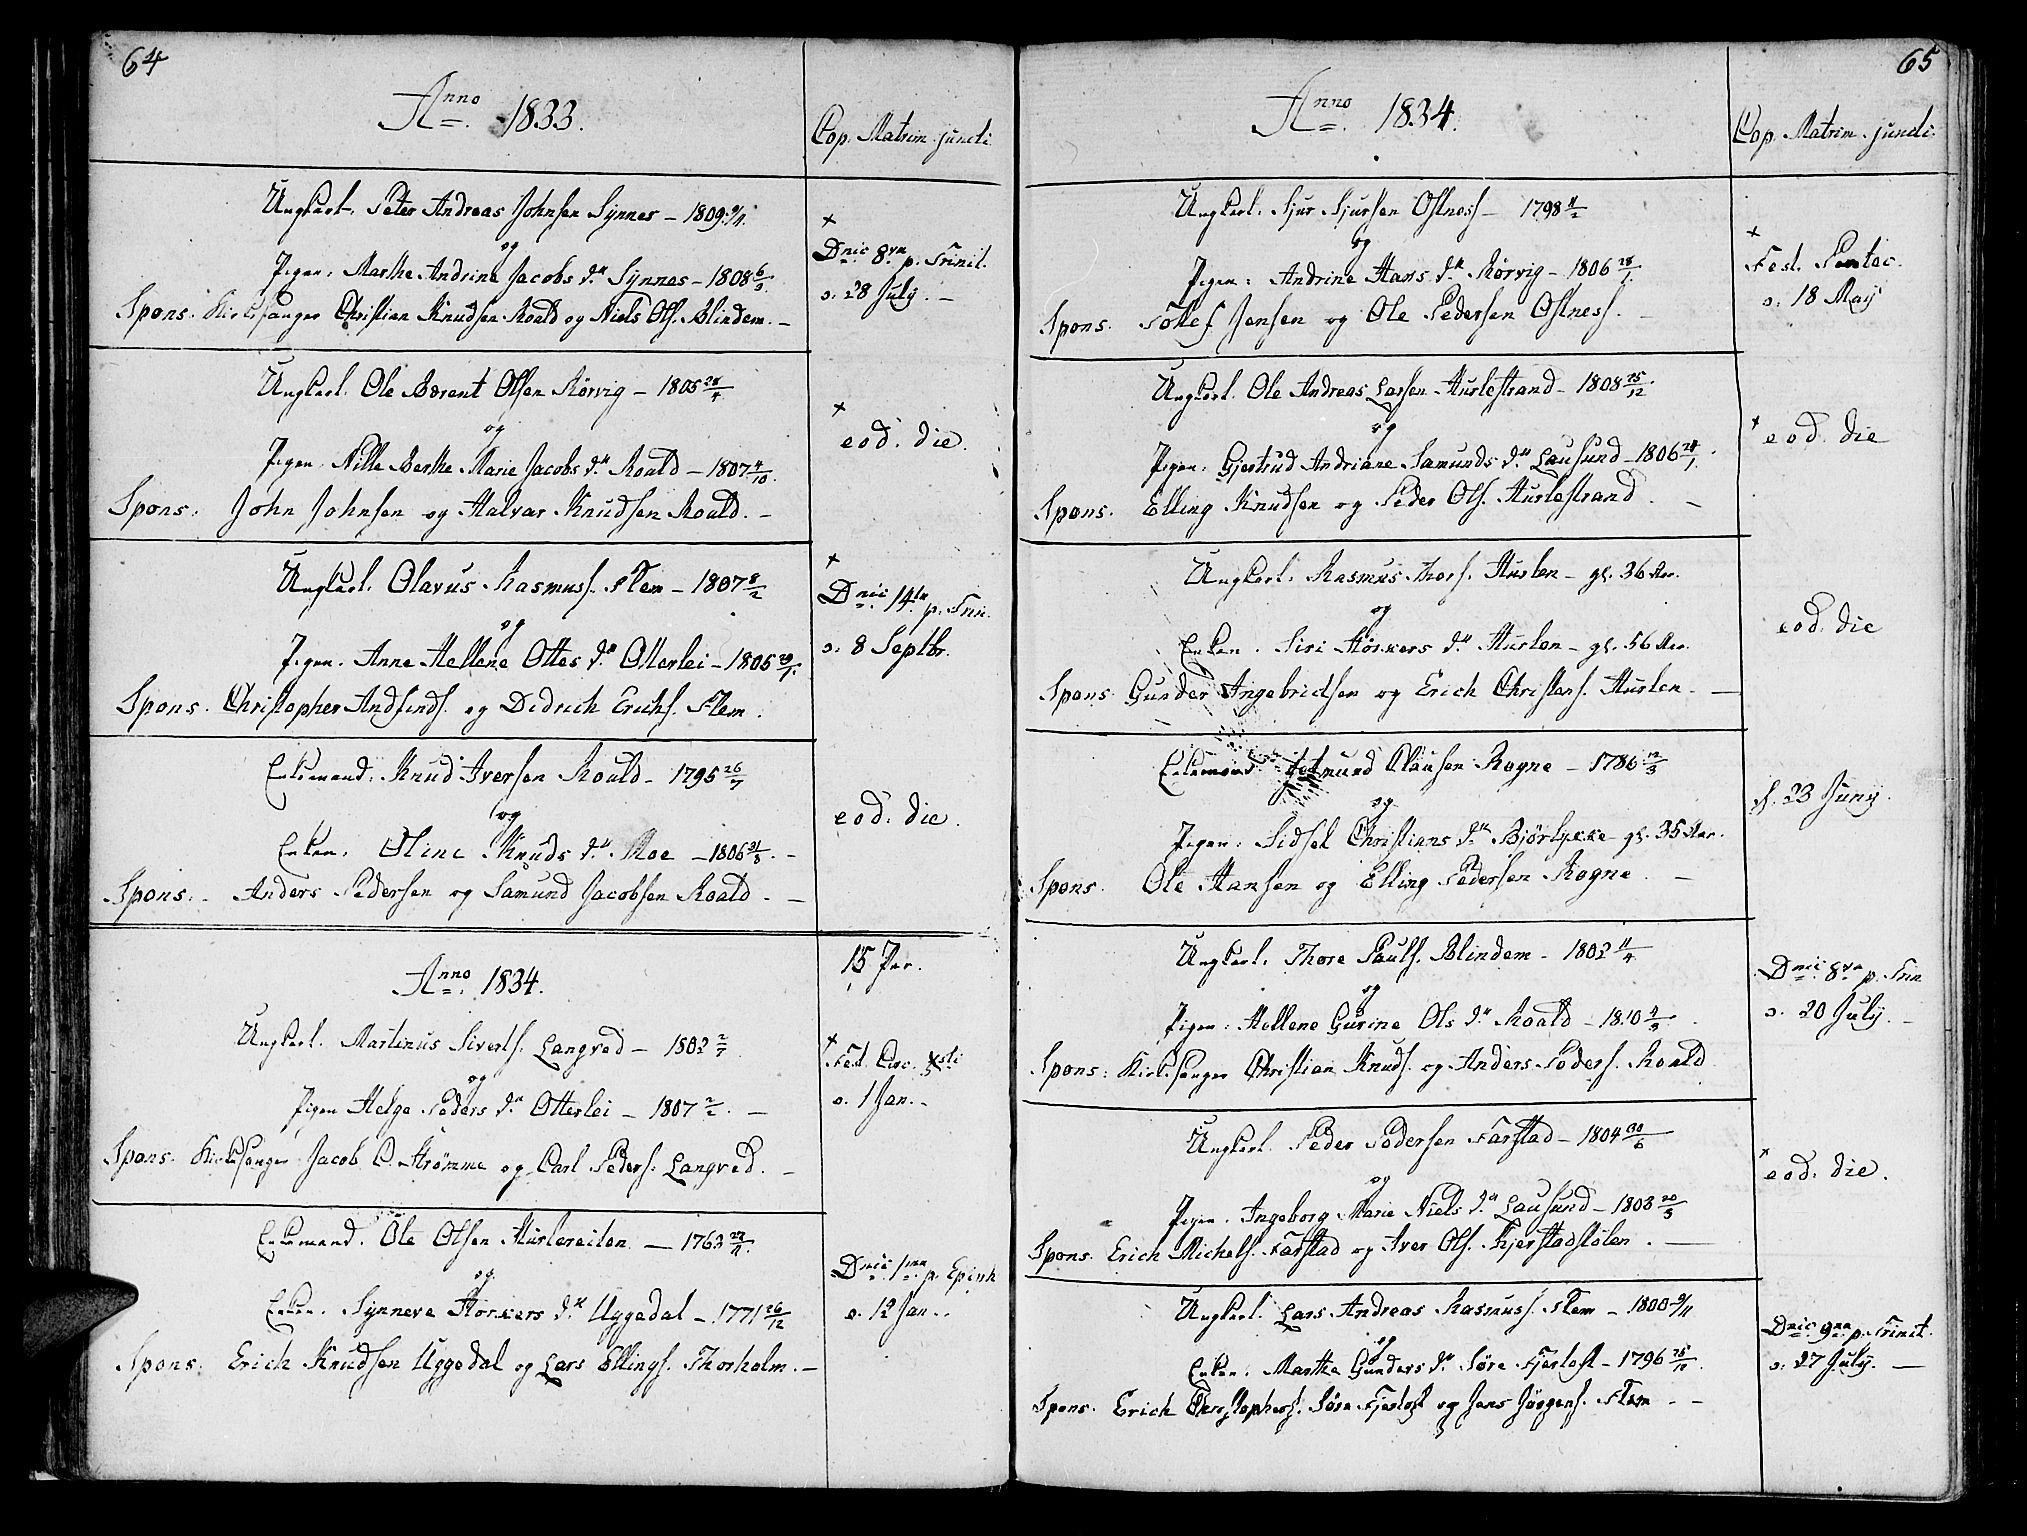 64
Anno 1833.
Cop. Matrim. juncti.
Ungkarl. Peter Andreas Johnsen Synnes – 1809 9/4.
og
Pigen: Marthe Andrine Jacobs dr Synnes – 1808 6/3.
Spons: Kirkesanger Christian Knudsen Roald og Niels Ols. Blindem. –
+
Dnic 8va p. Trinit.
o: 28 July. –
Ungkarl. Ole Bærent Olsen Rørvig – 1805 28/4
og
Pigen. Nille Berthe Marie Jacobs dr Roald – 1807 4/10.
Spons: John Johnsen og Halvar Knudsen Roald. –
+
eod. die.
Ungkarl. Olavus Rasmuss. Flem – 1807 8/2
og
Pigen. Anne Hellene Ottes dr Otterlei – 1805 29/1.
Spons. Christopher Andfinds. og Didrich Erichs. Flem.
+
Dnic 14ta p. Trin.
o: 8 Septbr.
Enkemand. Knud Iversen Roald – 1795 26/7
og
Enken. Oline Knuds dr Roe – 1806 31/3. –
Spons. Anders Pedersen og Samund Jacobsen Roald. –
eod. die.
15 Par.
Anno 1834.
Ungkarl. Martinus Siverts. Langved – 1802 2/7
og
Pigen Helge Peders dr Otterlei – 1807 2/2. –
Spons. Kirkesanger Jacob C. Strømme og Carl Peders. Langved. –
+
Fest. Circ. Xsti
o. 1 Jan. –
Enkemand. Ole Olsen Hurlereiten – 1763 27/11.
og
Enken. Synneve Storkers dr Uggedal – 1771 26/12
Spons. Erich Knudsen Uggedal og Lars Ellings. Thorholm. –
Dnic 1ma p. Epiph
o. 12 Jan.
65
Anno 1834.
Cop. Matrim. juncti.
Ungkarl. Sjur Sjursen Ostness – 1798 11/2
og
Pigen: Andrine Hans dr Rørvig – 1806 28/1.
Spons. Tollef Jensen og Ole Pedersen Ostness. –
+
Fest. Pentec.
o: 18 May
Ungkarl. Ole Andreas Larsen Hurlestrand – 1808 25/12.
og
Pigen: Gjertrud Andriane Samunds dr Lausund – 1806 24/1.
Spons. Elling Knudsen og Peder Ols. Hurlestrand. –
+ eod. die
Ungkarl. Rasmus Thors. Hurlen – gl. 36 Aar.
og
Enken. Siri Storkers dr Hurlen – gl. 56 Aar.
Spons. Gunder Ingebrictsen og Erich Christens. Hurlen. –
eod. die
Enkemand. mund Clausen Rogne – 1786 12/3
og
Pigen: Sidsel Christians dr Bjørlykke – gl. 35 Aar.
Spons. Ole Hansen og Elling Pedersen Rogne. –
d. 23 Juny.
Ungkarl. Thore Pauls. Blindem – 1802 11/4
og
Pigen: Hellene Gurine Ols dr Roald – 1810 4/3.
Spons: Kirkesanger Christian Knuds. og Anders Peders. Roald
Dnic 8va p. Trin
o. 20 July. –
Ungkarl. Peder Pedersen Farstad – 1804 30/6
og
Pigen. Ingeborg Marie Niels dr Lausund – 1803 20/3
Spons. Erich Michels. Farstad og Iver Ols. Kjerstadstølen. –
+
eod. die.
Ungkarl. Lars Andreas Rasmuss. Flem – 1800 9/11
og
Enken: Marthe Gunders dr Søre Fjertoft – 1796 25/10.
Spons. Erich Christophers. Søre Fjertoft og Jens Jørgens. Flem. –
Dnic 9na p. Trinit.
o. 27 July. –